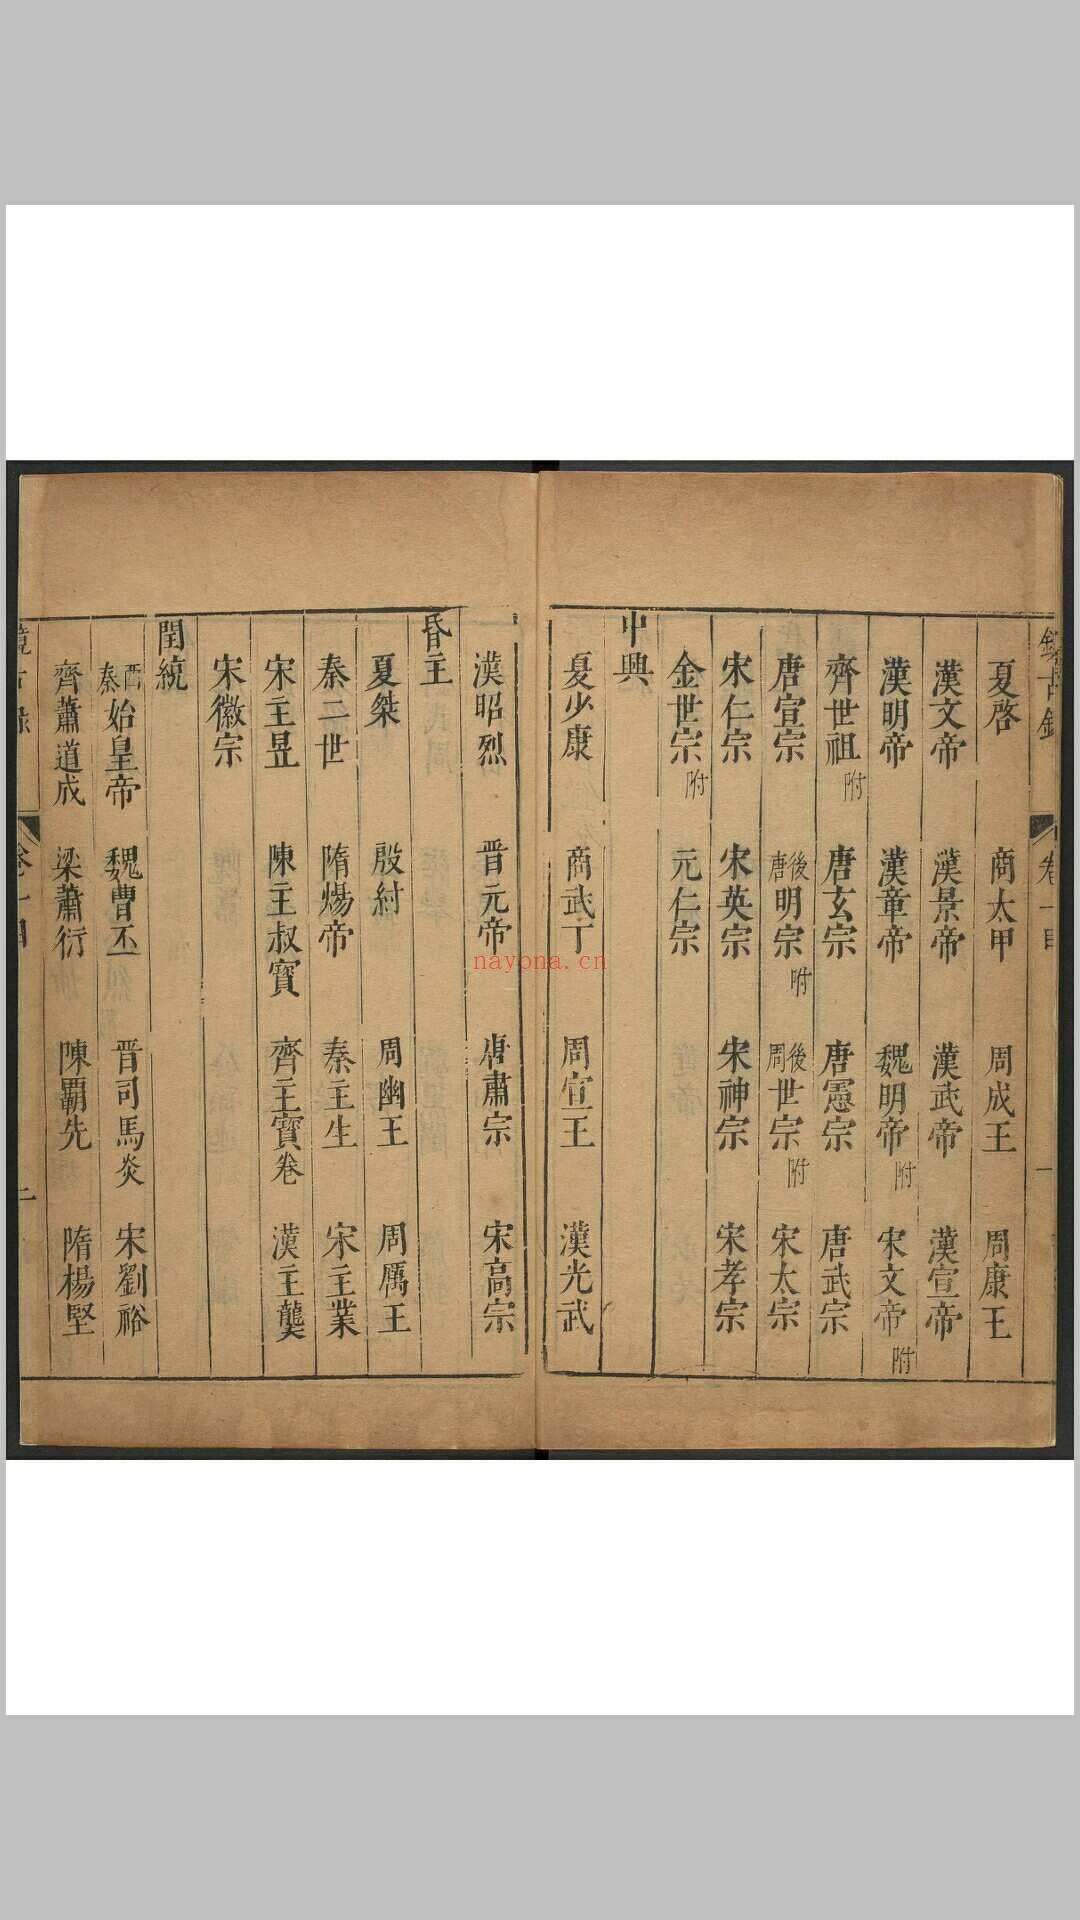 鏡古録 卷一目 一
夏啓 商太甲 周成王 周康王
漢文帝 漢景帝 漢武帝 漢宣帝
漢明帝 漢章帝 魏明帝附 宋文帝附
齊世祖附 唐玄宗 唐憲宗 唐武宗
唐宣宗 後唐明宗附 後周世宗附 宋太宗
宋仁宗 宋英宗 宋神宗 宋孝宗
金世宗附 元仁宗
中興
夏少康 商武丁 周宣王 漢光武
漢昭烈 晋元帝 唐肅宗 宋高宗
昏主
夏桀 殷紂 周幽王 周厲王
秦二世 隋煬帝 秦主生 宋主業
宋主昱 陳主叔寳 齊主寳卷 漢主龑
宋徽宗
閏統
西秦始皇帝 魏曹丕 晋司馬炎 宋劉裕
齊蕭道成 梁蕭衍 陳霸先 隋楊堅
鏡古録 卷一目 二
nayona.cn